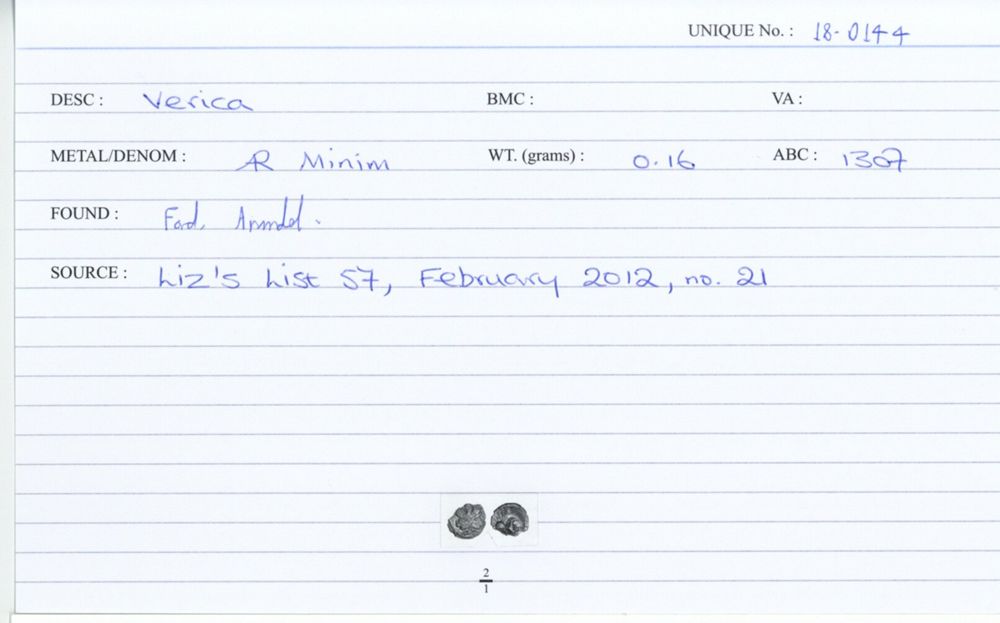 UNIQUE No. : 18-0144
DESC : Verica BMC : VA :
METAL/DENOM : AR Minim WT. (grams) : 0.16 ABC : 1307
FOUND : Ford, Arundel.
SOURCE : Liz's List 57, February 2012, no. 21
2
1